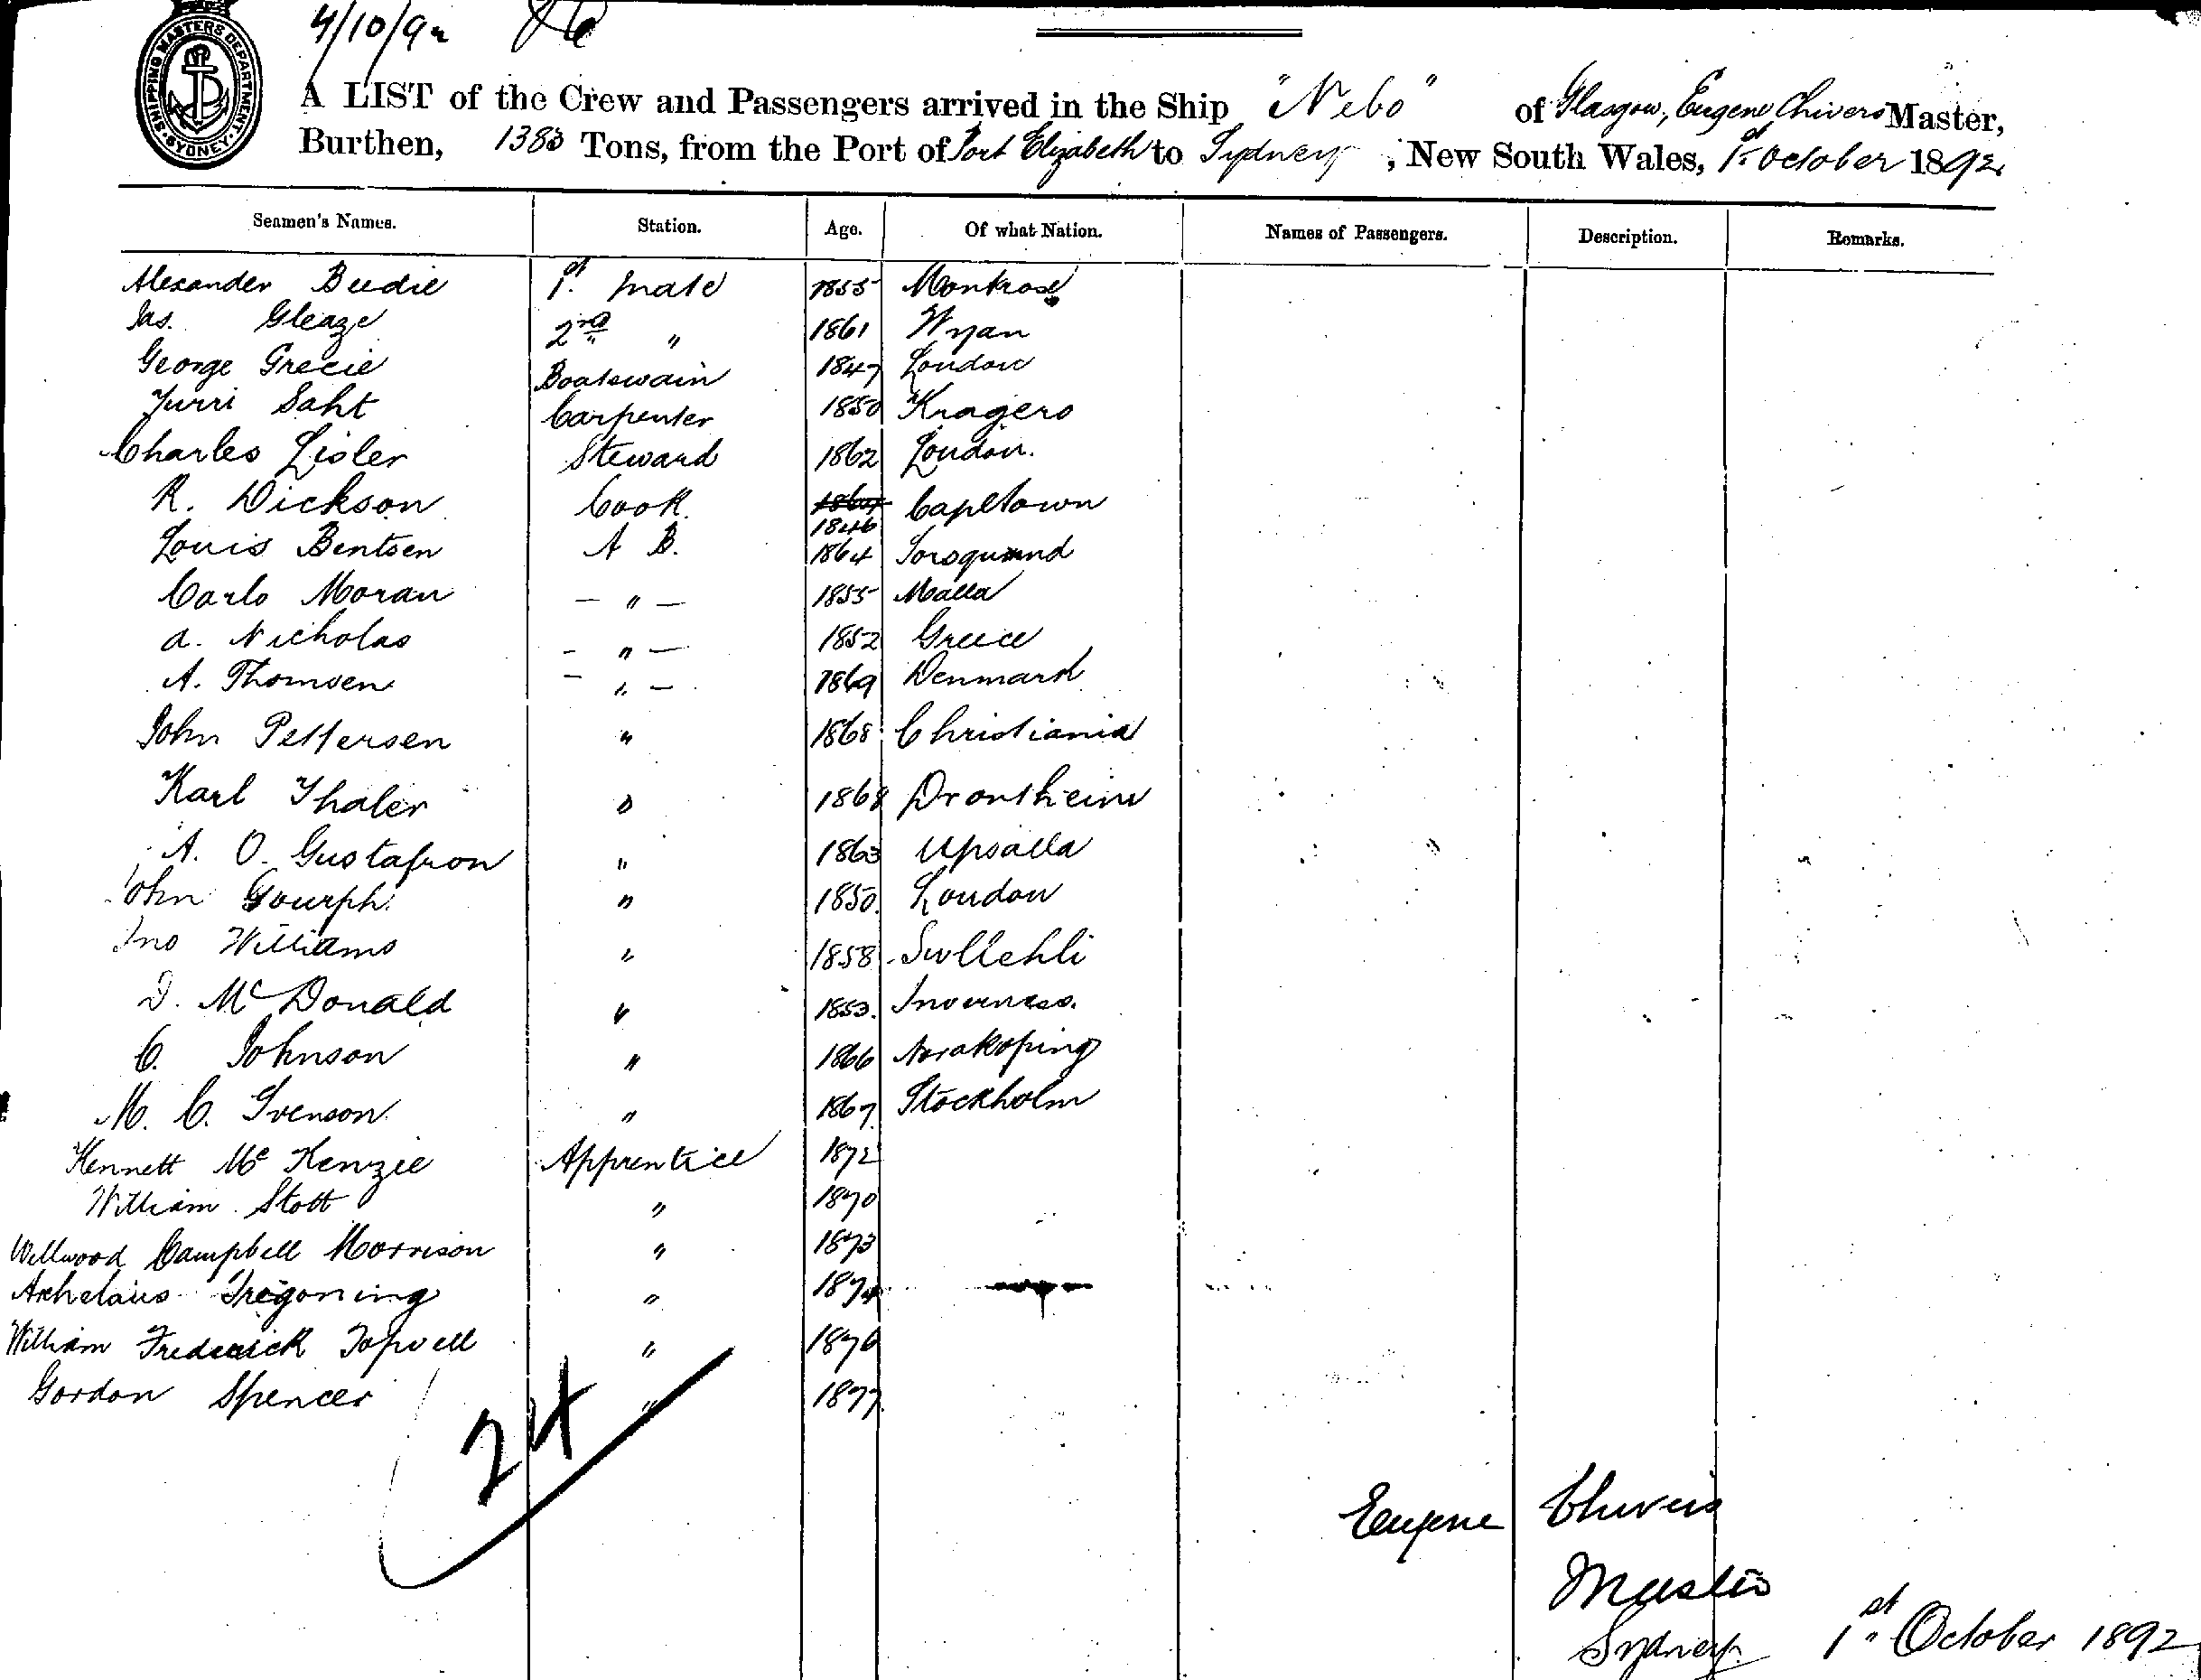 4/10/92
SHIPPING MASTERS DEPARTMENT. SYDNEY
A LIST of the Crew and Passengers arrived in the Ship "Nebo" of Glasgow, Eugene Chivers Master,
Burthen, 1383 Tons, from the Port of Port Elizabeth to Sydney, New South Wales, 1st October 1892.
Seamen's Names. Station. Age. Of what Nation. Names of Passengers. Description. Remarks.
Alexander Beedie 1st Mate 1855 Montrose
Jas. Gleaze 2nd " 1861 Wyan
George Grecie Boatswain 1847 London
Jurri Saht Carpenter 1850 Kragero
Charles Lisler Steward 1862 London.
R. Dickson Cook. 1846 Capetown
Louis Bentsen A B. 1864
Carlo Moran — " — 1855 Malta
A. Nicholas - " — 1852 Greece
A. Thomsen — " — 1869 Denmark
John Pettersen " 1868 Christiania
Karl Thaler " 1868 Drontheim
A. O. Gustafson " 1863 Upsalla
John " 1850. London
Jno Williams " 1858
D. McDonald " 1853. Inverness.
C. Johnson " 1866 Norakoping
M. C. Svenson " 1867. Stockholm
Kennett McKenzie Apprentice 1872
William Stott " 1870
Wellwood Campbell Morrison " 1873
Archelaus Tregoning " 1874
William Frederick Topsell " 1876
Gordon Spencer " 1877.
24
Eugene Chivers
Master
Sydney. 1st October 1892